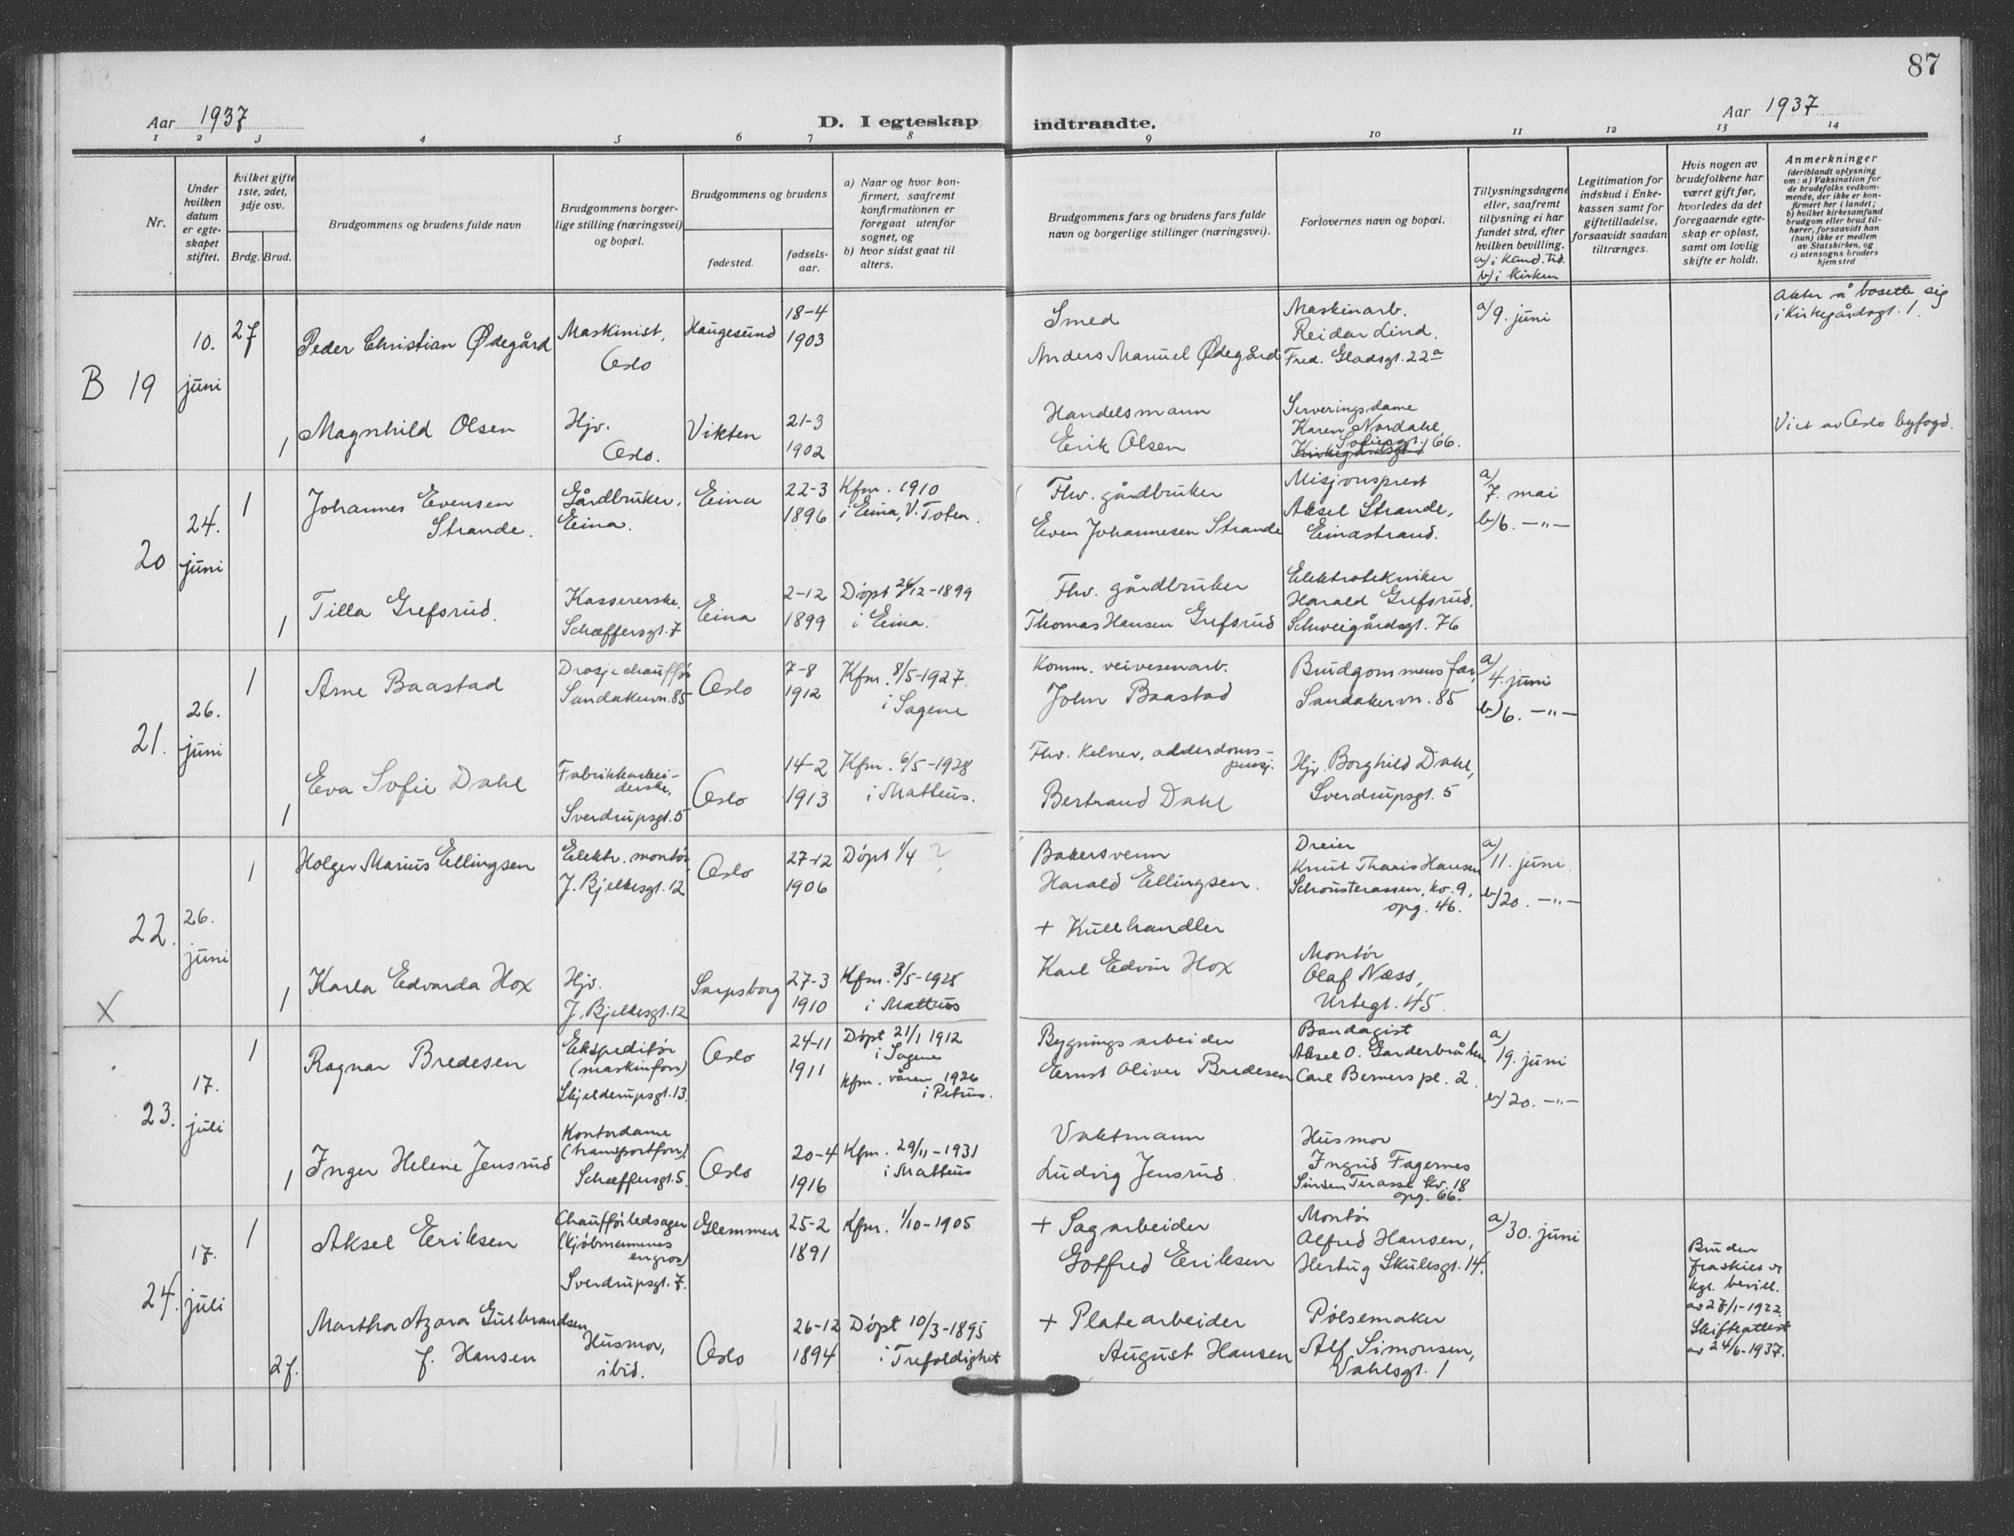 87
Aar 1937
D. I egteskap indtraadte.
Aar 1937
1 2 3 4 5 6 7 8 9 10 11 12 13 14
Nr.
Under
hvilken
datum
er egte-
skapet
stiftet.
hvilket gifte
1ste, 2det,
3dje osv.
Brdg. Brud.
Brudgommens og brudens fulde navn
Brudgommens borger-
lige stilling (næringsvei)
og bopæl.
Brudgommens og brudens
fødested.
fødsels-
aar.
a) Naar og hvor kon-
firmert, saafremt
konfirmationen er
foregaat utenfor
sognet, og
b) hvor sidst gaat til
alters.
Brudgommens fars og brudens fars fulde
navn og borgerlige stillinger (næringsvei).
Forlovernes navn og bopæl.
Tillysningsdagene
eller, saafremt
tillysning ei har
fundet sted, efter
hvilken bevilling.
a) i Kand. tid.
b) i kirken
Legitimation for
indskud i Enke-
kassen samt for
giftetilladelse,
forsaavidt saadan
tiltrænges.
Hvis nogen av
brudefolkene har
været gift før,
hvorledes da det
foregaaende egte-
skap er opløst,
samt om lovlig
skifte er holdt.
Anmerkninger
(deriblandt oplysning
om: a) Vaksination for
de brudefolks vedkom-
mende, der ikke er kon-
firmert her i landet;
b) hvilket kirkesamfund
brudgom eller brud til-
hører, forsaavidt han
(hun) ikke er medlem
av Statskirken, og
c) utensogns bruders
hjemsted
B 19
10.
juni
2f
Peder Christian Ødegård
Maskinist,
Oslo
Haugesund
18-4
1903
Smed
Anders Manuel Ødegård
Maskinarb.
Reidar Lind,
Fred. Gladsgt. 22a
a/ 9. juni
Akter å bosette sig
i Kirkegårdsgt. 1.
1
Magnhild Olsen
Hjv.
Oslo.
Vikten
21-3
1902
Handelsmann
Erik Olsen
Serveringsdame
Karen Nordahl,
Sofiesgt. 66.
Viet av Oslo byfogd.
20
24.
juni
1
Johannes Evensen
Strande.
Gårdbruker,
Eina.
Eina
22-3
1896
Kfm. 1910
i Eina, V. Toten.
Fhv. gårdbruker
Even Johannesen Strande
Misjonsprest
Aksel Strande,
Einastrand.
a/
7. mai
b/ 6. -"-
1
Tilla Grefsrud.
Kassererske.
Schæffersgt. 7
Eina
2-12
1899
Døpt 26/12-1899
i Eina.
Fhv. gårdbruker
Thomas Hansen Grefsrud
Elektrotekniker
Harald Grefsrud,
Schweigårdsgt. 76
21.
26.
juni
1
Arne Baastad
Drosjechauffør
Sandakervn. 85
Oslo
7-8
1912
Kfm. 8/5-1927
i Sagene
Komm. veivesenarb.
John Baastad
Brudgommens far,
Sandakervn. 85
a)
4. juni
b) 6. -"-
1
Eva Sofie Dahl
Fabrikkarbei-
derske,
Sverdrupsgt. 5
Oslo
14-2
1913
Kfm. 6/5-1928
i Matteus.
Fhv. kelner, alderdoms-
pensj.
Bertrand Dahl
Hjv. Borghild Dahl,
Sverdrupsgt. 5
22.
26.
juni
1
Holger Marius Ellingsen
Elektr. montør
J. Bjelkesgt. 12
Oslo
27-12
1906
Døpt 1/4 ?
Bakersvenn
Harald Ellingsen.
Dreier
Knut Tharis Hansen
Schousterassen, ko. 9,
opg. 46.
a)
11. juni
b) 20. -"-
X
1
Karla Edvarda Hox
Hjv.
J. Bjelkesgt. 12
Sarpsborg
27-3
1910
Kfm. 3/5-1925
i Matteus
+ Kullhandler
Karl Edvin Hox
Montør
Olaf Næss,
Urtegt. 45.
23.
17.
juli
1
Ragnar Bredesen
Ekspeditør
(maskinforr)
Skjelderupsgt. 13.
Oslo
24-11
1911
Døpt 21/1 1912
i Sagene
Kfm. våren 1926
i Petrus.
Bygningsarbeider
Ernst Oliver Bredesen
Bandagist
Aksel O. Garderbråten
Carl Berners pl. 2.
a)
19. juni
b) 20. -"-
1
Inger Helene Jensrud
Kontordame
(transportforr)
Schæffersgt. 5.
Oslo
20-4
1916
Kfm. 29/11-1931
i Matteus
Vaktmann
Ludvig Jensrud.
Husmor
Ingrid Fagernes
Sinsen Terasse kv. 18
opg. 66.
24.
17.
juli
1
Aksel Eriksen
Chauffør ledsager
(kjøbmennenes
engros)
Sverdrupsgt. 7.
Glemmen
25-2
1891
Kfm. 1/10-1905
+ Sagarbeider
Gotfred Eriksen
Montør
Alfred Hansen,
Hertug Skulesgt. 14.
a)
30. juni
Bruden
fraskilt v.
kgl. bevill.
av 27/1-1922.
Skifteattest
av 24/6-1937.
2f.
Martha Azora Gulbrandsen
f. Hansen
Husmor,
ibid.
Oslo
26-12
1894
Døpt 10/3-1895
i Trefoldighet
+ Platearbeider
August Hansen
Pølsemaker
Alf Simonsen,
Vahlsgt. 1